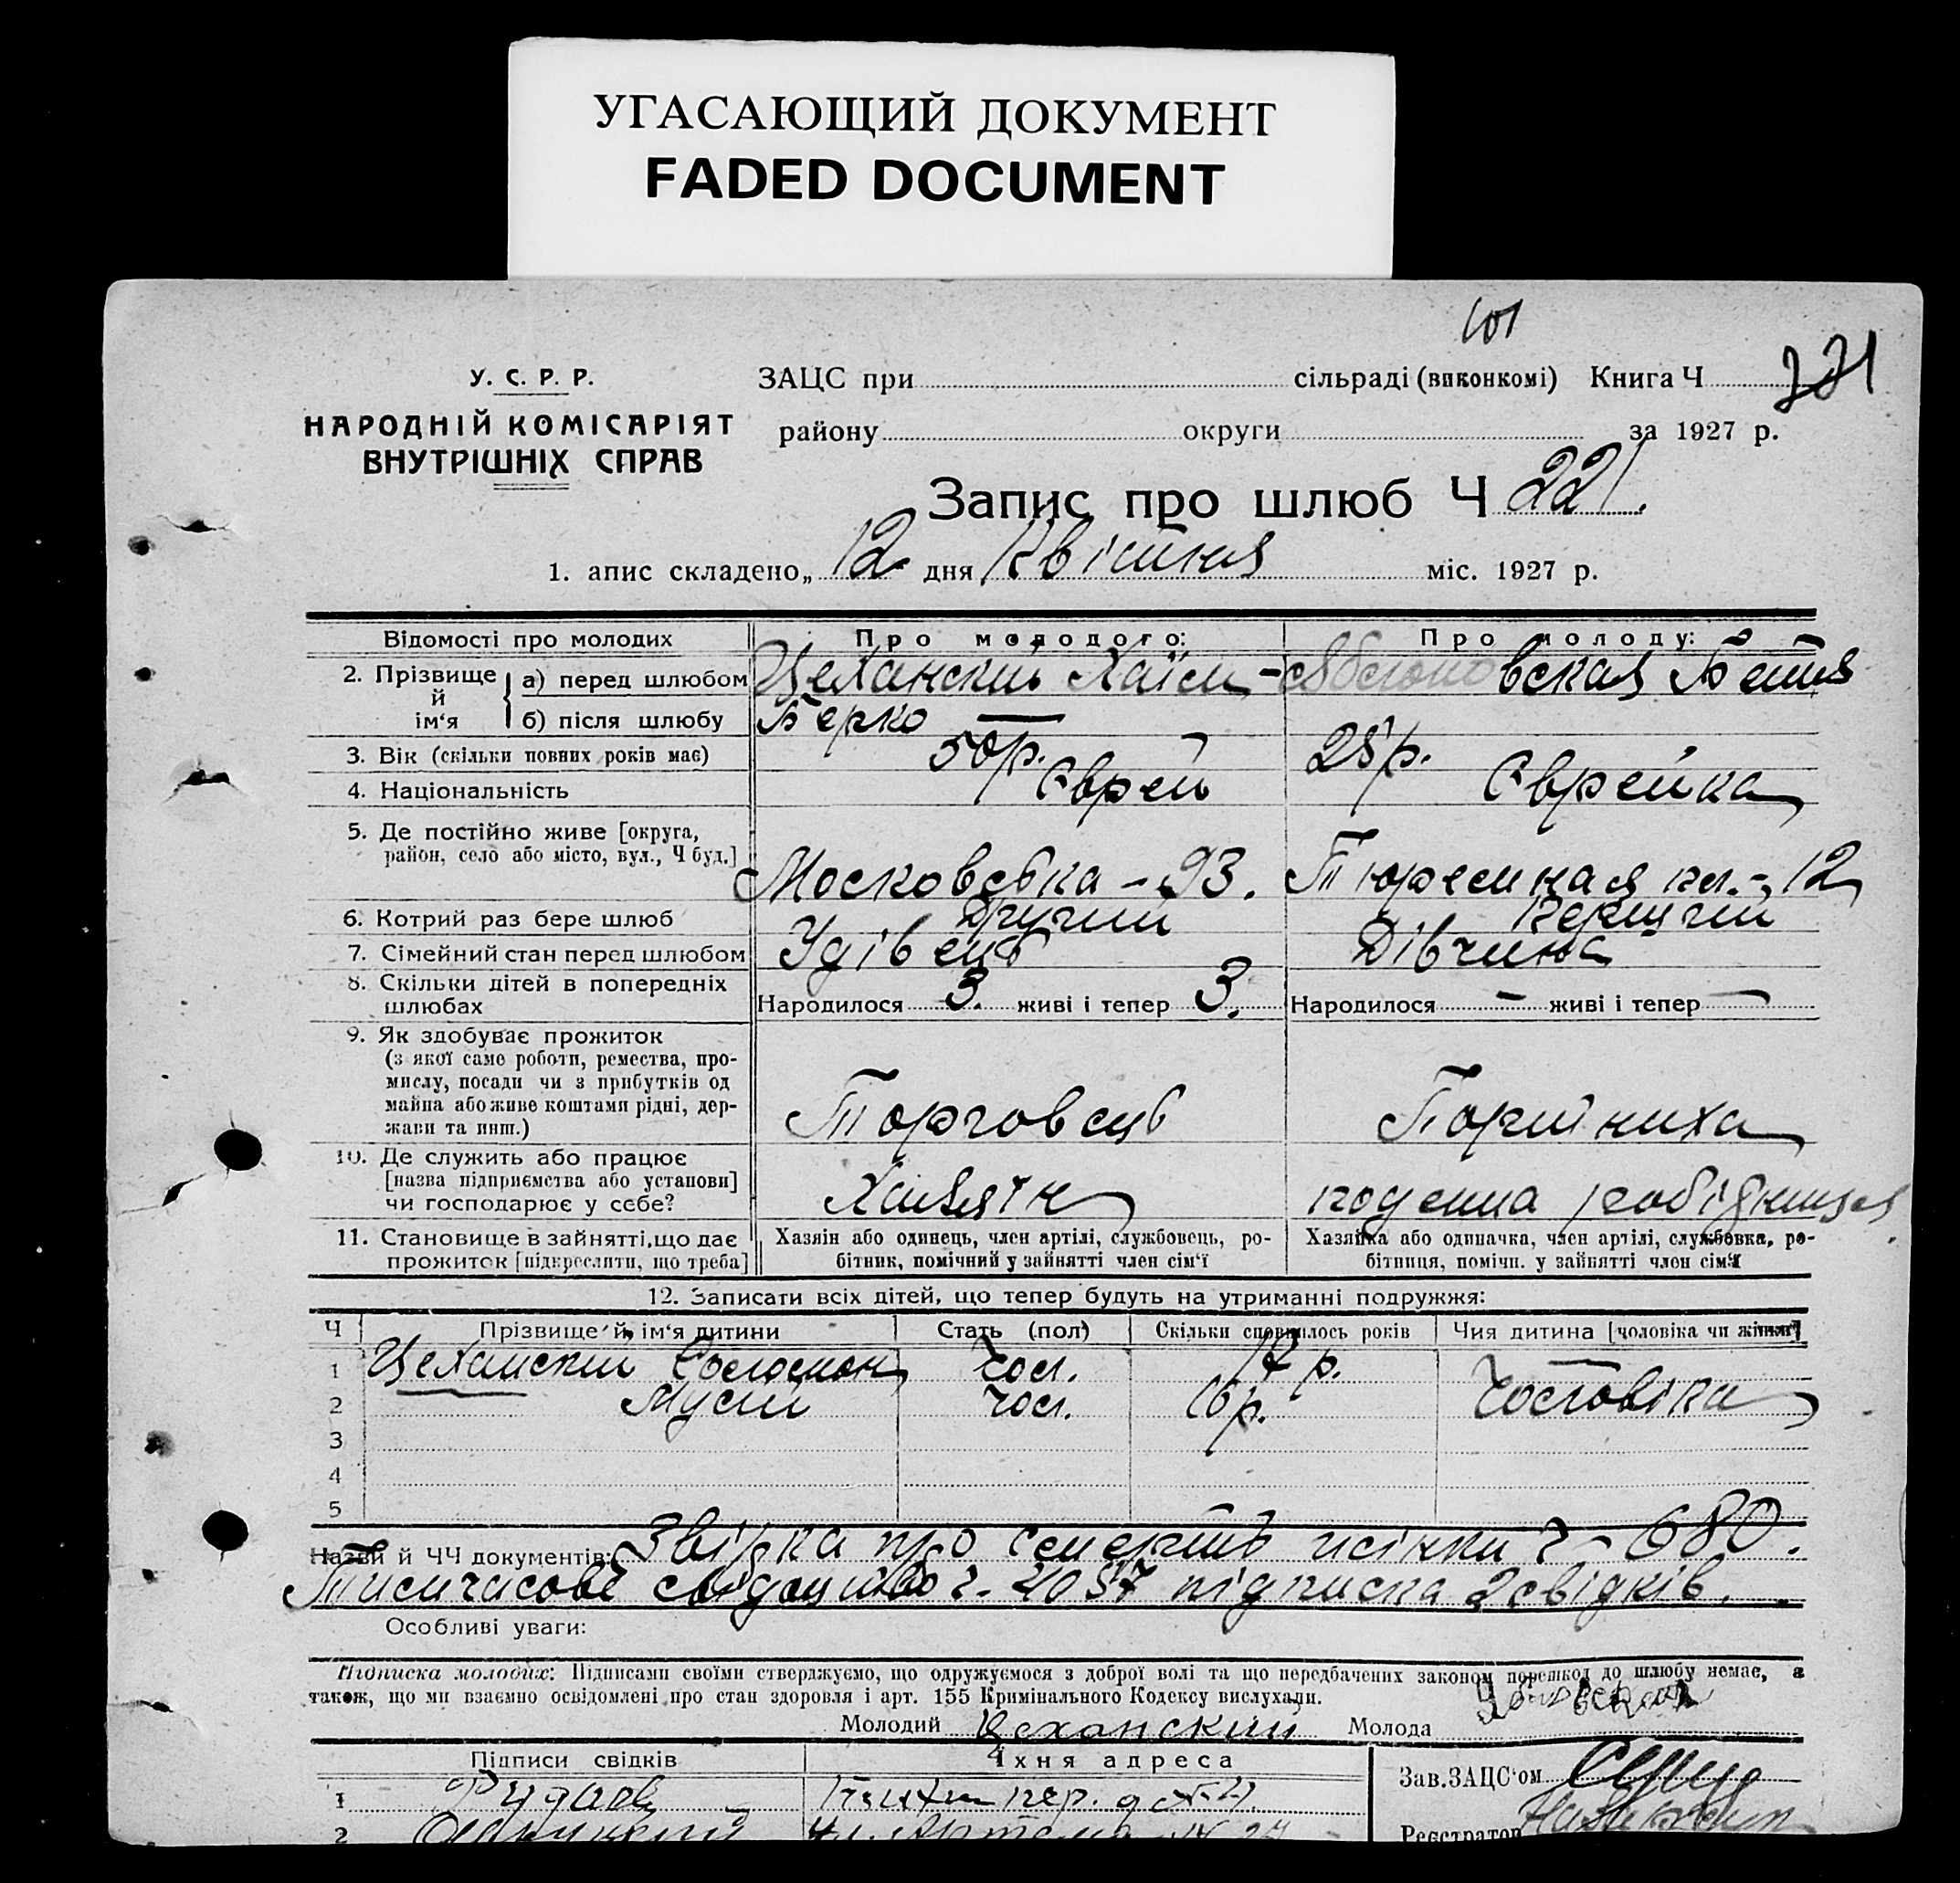 УГАСАЮЩИЙ ДОКУМЕНТ
FADED DOCUMENT
У. С. Р. Р.
НАРОДНІЙ КОМІСАРІЯТ
ВНУТРІШНІХ СПРАВ
ЗАЦС при сільраді (виконкомі) Книга Ч
району округи за 1927 р.
Запис про шлюб Ч 221.
1. апис складено „ 12 дня Квітня міс. 1927 р.
Відомості про молодих
Про молодого:
Про молоду:
2. Прізвище й ім'я
а) перед шлюбом
Цеханский Хаїм-
Яблоновская Бетя
б) після шлюбу
Берко —
3. Вік (скільки повних років має)
50 р.
4. Національність
Єврей
Єврейка
5. Де постійно живе [округа,
район, село або місто, вул., Ч буд.]
Московська - 93.
Тюремная пл.-12
6. Котрий раз бере шлюб
Другий
Перший
7. Сімейний стан перед шлюбом
Удівець
Дівчина
8. Скільки дітей в попередніх
шлюбах
Народилося 3. живі і тепер 3.
Народилося — живі і тепер —
9. Як здобуває прожиток
(з якої саме роботи, ремества, про-
мислу, посади чи з прибутків од
майна або живе коштами рідні, дер-
жави та инш.)
Торговець
Портниха
10. Де служить або працює
[назва підприємства або установи]
чи господарює у себе?
Хазяїн
поденна робідниця
11. Становище в зайнятті, що дає
прожиток [підкреслити, що треба]
Хазяін або одинець, член артілі, службовець, ро-
бітник, помічний у зайнятті член сім'ї
Хазяйка або одиначка, член артілі, службовка, ро-
бітниця, помічн. у зайнятті член сім'ї
12. Записати всіх дітей, що тепер будуть на утриманні подружжя:
Ч Прізвище й ім'я дитини Стать (пол) Скільки сповнилось років Чия дитина [чоловіка чи жінки]
1 Цеханский Соломон чол. 17 р.
2 Мусій чол. 16 р. Чоловіка
3
4
5
Назви й ЧЧ документів: Звідка про смерть жінки ч- 680.
Тимчасове свідоцтво ч. 4057 підписка 2 свідків.
Особливі уваги:
Підписка молодих: Підписами своїми стверджуємо, що одружуємося з доброї волі та що передбачених законом перешкод до шлюбу немає, а
також, що ми взаємно освідомлені про стан здоровля і арт. 155 Кримінального Кодексу вислухали.
Молодий Цеханский Молода
Підписи свідків
Їхня адреса
Зав. ЗАЦС'ом
1
2
Реєстратор